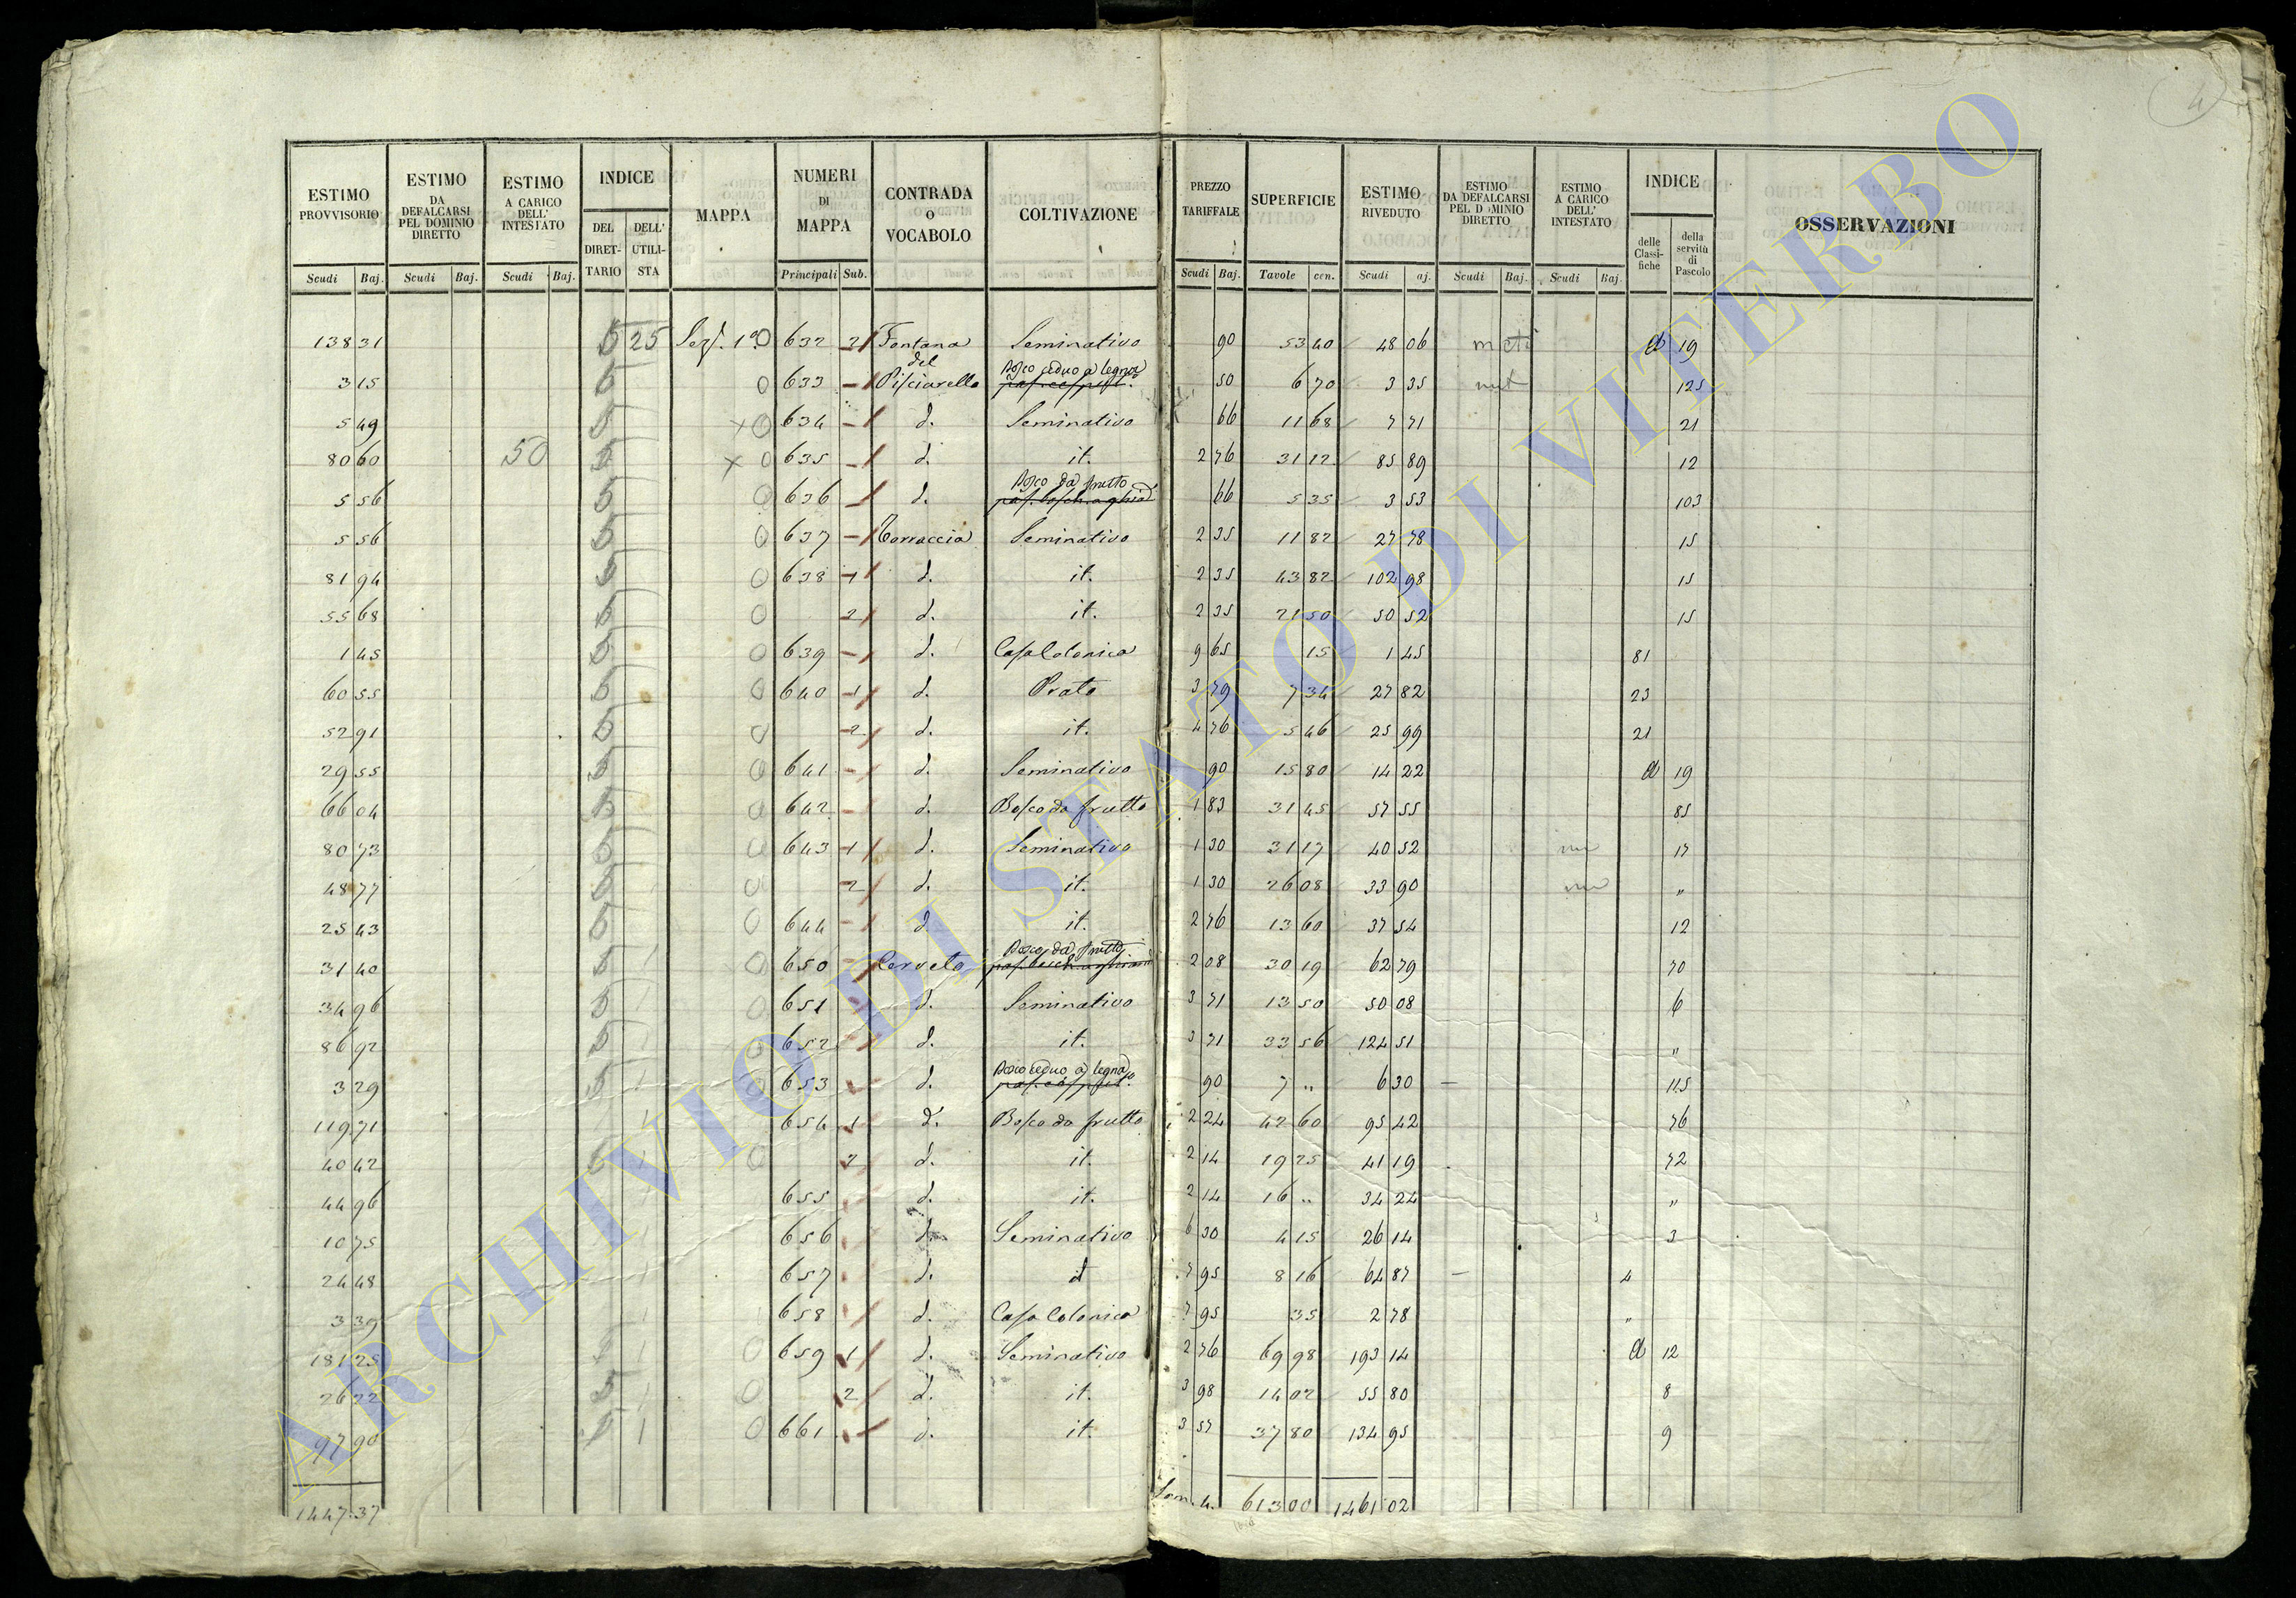 4
ESTIMO PROVVISORIO | ESTIMO DA DEFALCARSI PEL DOMINIO DIRETTO | ESTIMO A CARICO DELL' INTESTATO | INDICE | MAPPA | NUMERI DI MAPPA | CONTRADA o VOCABOLO | COLTIVAZIONE | PREZZO TARIFFALE | SUPERFICIE | ESTIMO RIVEDUTO | ESTIMO DA DEFALCARSI PEL DOMINIO DIRETTO | ESTIMO A CARICO DELL' INTESTATO | INDICE | OSSERVAZIONI
DEL DIRETTARIO | DELL' UTILISTA | delle Classifiche | della servitù di Pascolo
Scudi | Baj. | Scudi | Baj. | Scudi | Baj. | Principali | Sub. | Scudi | Baj. | Tavole | cen. | Scudi | aj. | Scudi | Baj. | Scudi | Baj.
138 31 | 5 | 25 | Sez. 1a 0 | 632 | 2 | Fontana del | Seminativo | 90 | 53 40 | 48 06 | 19
3 15 | 5 | 0 | 633 | - | Pisciarello | Bosco ceduo a legna | 50 | 6 70 | 3 35 | 125
5 49 | 5 | x 0 | 634 | - | d. | Seminativo | 66 | 11 68 | 7 71 | 21
80 60 | 50 | 5 | x 0 | 635 | - | d. | it. | 2 76 | 31 12 | 85 89 | 12
5 56 | 5 | 0 | 636 | - | d. | Bosco da frutto | 66 | 5 35 | 3 53 | 103
5 56 | 5 | 0 | 637 | - | Torraccia | Seminativo | 2 35 | 11 82 | 27 78 | 15
81 94 | 5 | 0 | 638 | 1 | d. | it. | 2 35 | 43 82 | 102 98 | 15
55 68 | 5 | 0 | 2 | d. | it. | 2 35 | 21 50 | 50 52 | 15
1 45 | 5 | 0 | 639 | - | d. | Casa Colonica | 9 65 | 15 | 1 45 | 81
60 55 | 5 | 0 | 640 | 1 | d. | Prato | 3 79 | 7 34 | 27 82 | 23
52 91 | 5 | 0 | 2 | d. | it. | 4 76 | 5 46 | 25 99 | 21
29 55 | 5 | 0 | 641 | - | d. | Seminativo | 90 | 15 80 | 14 22 | 19
66 04 | 5 | 0 | 642 | - | d. | Bosco da frutto | 1 83 | 31 45 | 57 55 | 85
80 73 | 5 | 0 | 643 | 1 | d. | Seminativo | 1 30 | 31 17 | 40 52 | 17
48 77 | 5 | 0 | 2 | d. | it. | 1 30 | 26 08 | 33 90 | "
25 43 | 5 | 0 | 644 | - | d | it. | 2 76 | 13 60 | 37 54 | 12
31 40 | 5 | 1 | 0 | 650 | - | Cerveto | Bosco da frutto | 2 08 | 30 19 | 62 79 | 70
34 96 | 5 | 1 | 0 | 651 | d. | Seminativo | 3 71 | 13 50 | 50 08 | 6
86 92 | 5 | 1 | 0 | 652 | d. | it. | 3 71 | 33 56 | 124 51 | "
3 29 | 5 | 1 | 0 | 653 | d. | Bosco ceduo a legna | 90 | 7 " | 6 30 | 115
119 71 | 1 | 654 | 1 | d. | Bosco da frutto | 2 24 | 42 60 | 95 42 | 76
40 42 | 1 | 0 | 2 | d. | it. | 2 14 | 19 25 | 41 19 | 72
44 96 | 655 | d. | it. | 2 14 | 16 " | 34 24 | "
10 75 | 656 | d. | Seminativo | 6 30 | 4 15 | 26 14 | 3
24 48 | 657 | d. | d | 7 95 | 8 16 | 64 87 | 4
3 39 | 658 | d. | Casa Colonica | 7 95 | 35 | 2 78 | "
181 25 | 5 | 1 | 0 | 659 | 1 | d. | Seminativo | 2 76 | 69 98 | 193 14 | 12
26 22 | 5 | 1 | 0 | 2 | d. | it. | 3 98 | 14 02 | 55 80 | 8
97 90 | 5 | 1 | 0 | 661 | - | d. | it. | 3 57 | 37 80 | 134 95 | 9
1447.37 | 613 00 | 1461 02
ARCHIVIO DI STATO DI VITERBO